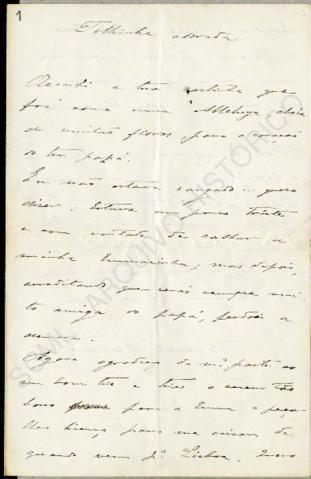 1
Filhinha adorada.
Recebi a tua cartinha que
foi como uma Alleluya cheia
de muitas flores, para o coração
do teu papá.
Eu não estava zangado... quero
dizer: Estava um pouco triste
e com vontade de ralhar á
minha Emmasinha; mas depois,
acreditando que serás sempre mui
to amiga do papá, perdoei a
Agora agradece da m.ª parte ao
teu bom tio e tias o serem tão
bons para a Emma e peça-
lhes licença, para me avisar de
quando vem p.ª Lisboa. Quero
SCML ARQUIVO HISTÓRICO